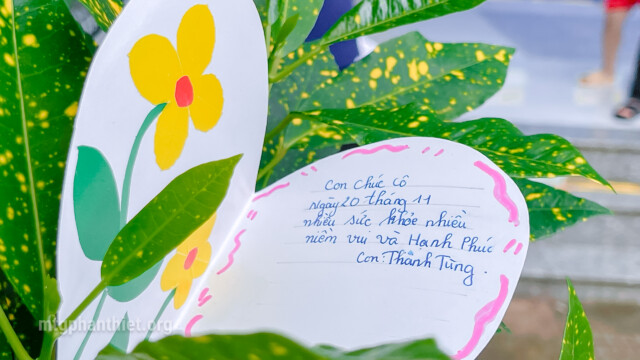 Con chúc cô
ngày 20 tháng 11
nhiều sức khỏe nhiều
niềm vui và Hạnh Phúc
Con: Thanh Tùng.
mtgphanthiet.org